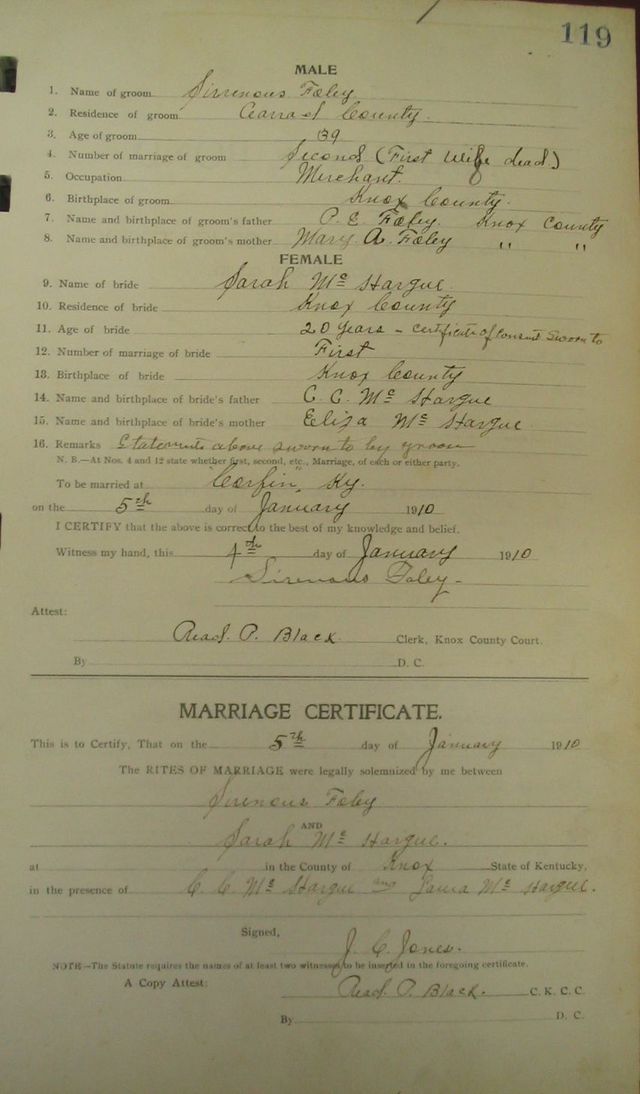 119
MALE
1. Name of groom Sirrenous Foley
2. Residence of groom County
3. Age of groom 39
4. Number of marriage of groom Second (First Wife dead)
5. Occupation Merchant.
6. Birthplace of groom Knox County.
7. Name and birthplace of groom's father P. E. Foley. Knox County
8. Name and birthplace of groom's mother Mary A. Foley " "
FEMALE
9. Name of bride Sarah Mc Hargue
10. Residence of bride Knox County
11. Age of bride 20 years – certificate of consent sworn to
12. Number of marriage of bride First
13. Birthplace of bride Knox County
14. Name and birthplace of bride's father C. C. Mc Hargue
15. Name and birthplace of bride's mother Eliza Mc Hargue
16. Remarks Statements above sworn to by groom
N. B.—At Nos. 4 and 12 state whether first, second, etc., Marriage, of each or either party.
To be married at "Corbin" Ky.
on the 5th day of January 1910
I CERTIFY that the above is correct to the best of my knowledge and belief.
Witness my hand, this 4th day of January 1910
Sirenous Foley
Attest:
Read P. Black Clerk, Knox County Court.
By D. C.
MARRIAGE CERTIFICATE.
This is to Certify, That on the 5th day of January 1910
The RITES OF MARRIAGE were legally solemnized by me between
Sirenous Foley
AND
Sarah Mc Hargue.
at in the County of Knox State of Kentucky,
in the presence of C. C. Mc Hargue and Laura Mc Hargue.
Signed,
J. C. Jones.
NOTE—The Statute requires the names of at least two witnesses to be inserted in the foregoing certificate.
A Copy Attest: Read P. Black. C. K. C. C.
By D. C.